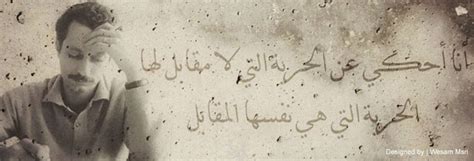 انا أحكي عن الحرية التي لا مقابل لها
الحرية التي هي نفسها المقابل
Designed by | Wesam Masri